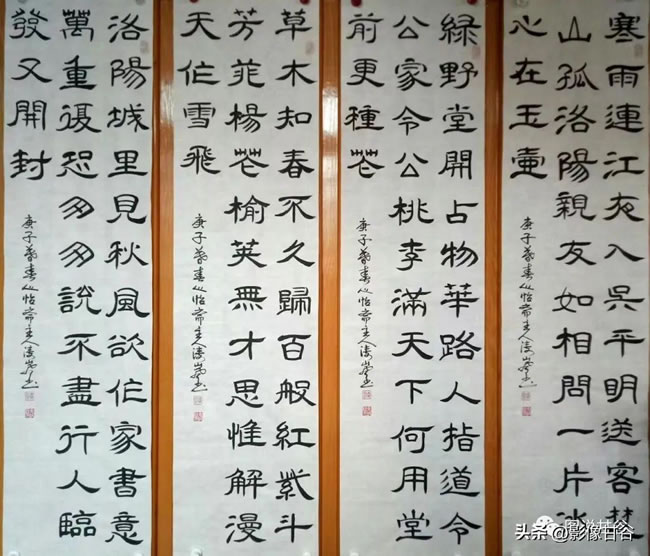 寒雨連江夜入吳平明送客楚
山孤洛陽親友如相問一片冰
心在玉壺
庚子暮春心怡齋主人
綠野堂開占物華路人指道令
公家令公桃李滿天下何用堂
前更種花
庚子暮春心怡齋主人
草木知春不久歸百般紅紫斗
芳菲楊花榆莢無才思惟解漫
天作雪飛
庚子暮春心怡齋主人
洛陽城里見秋風欲作家書意
萬重復恐匆匆說不盡行人臨
發又開封
庚子暮春心怡齋主人
头条 @影像甘谷